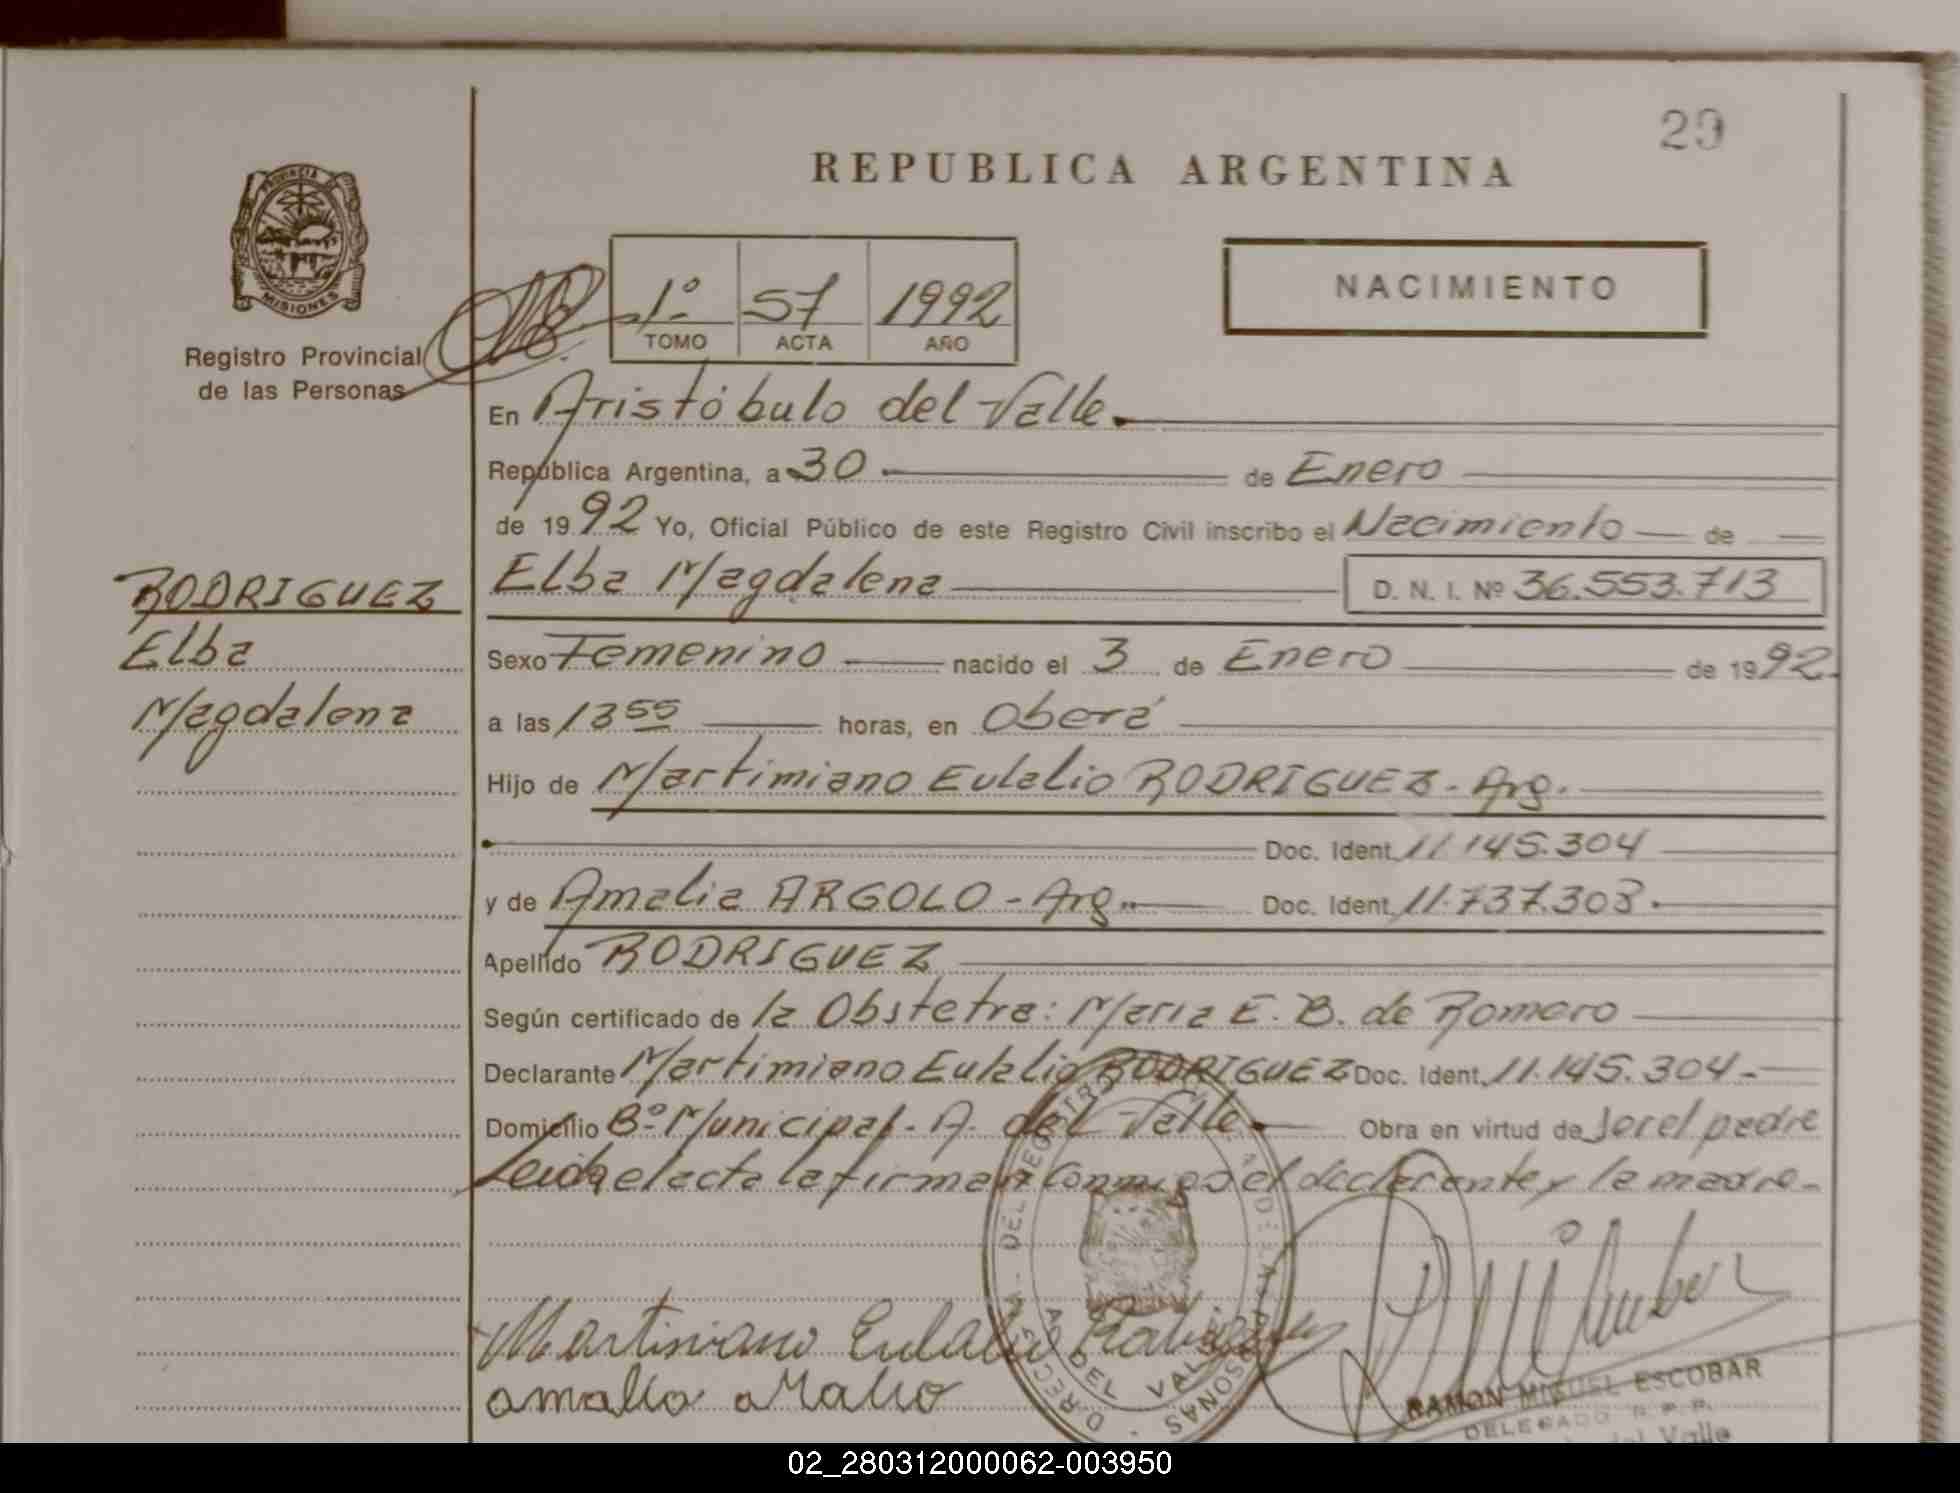 29
REPUBLICA ARGENTINA
PROVINCIA DE
MISIONES
Registro Provincial
de las Personas
1º 57 1992
TOMO ACTA AÑO
NACIMIENTO
En Aristóbulo del Valle.
República Argentina, a 30 de Enero
de 1992 Yo, Oficial Público de este Registro Civil inscribo el Nacimiento de
RODRIGUEZ
Elba
Magdalena
Elba Magdalena D. N. I. Nº 36.553.713
Sexo Femenino nacido el 3 de Enero de 1992.
a las 13 55 horas, en Oberá
Hijo de Martimiano Eulalio RODRIGUEZ - Arg.
Doc. Ident. 11.145.304
y de Amalia ARGOLO - Arg.. Doc. Ident. 11.737.308.
Apellido RODRIGUEZ
Según certificado de la Obstetra: Maria E. B. de Romero
Declarante Martimiano Eulalio RODRIGUEZ Doc. Ident. 11.145.304.-
Domicilio Bº Municipal - A. del Valle. Obra en virtud de ser el padre
Leida el acta la firman conmigo el declarante y la madre.-
Martimiano Eulalio
RAMON MIGUEL ESCOBAR
DELEGADO R.P.P.
del Valle
02_280312000062-003950